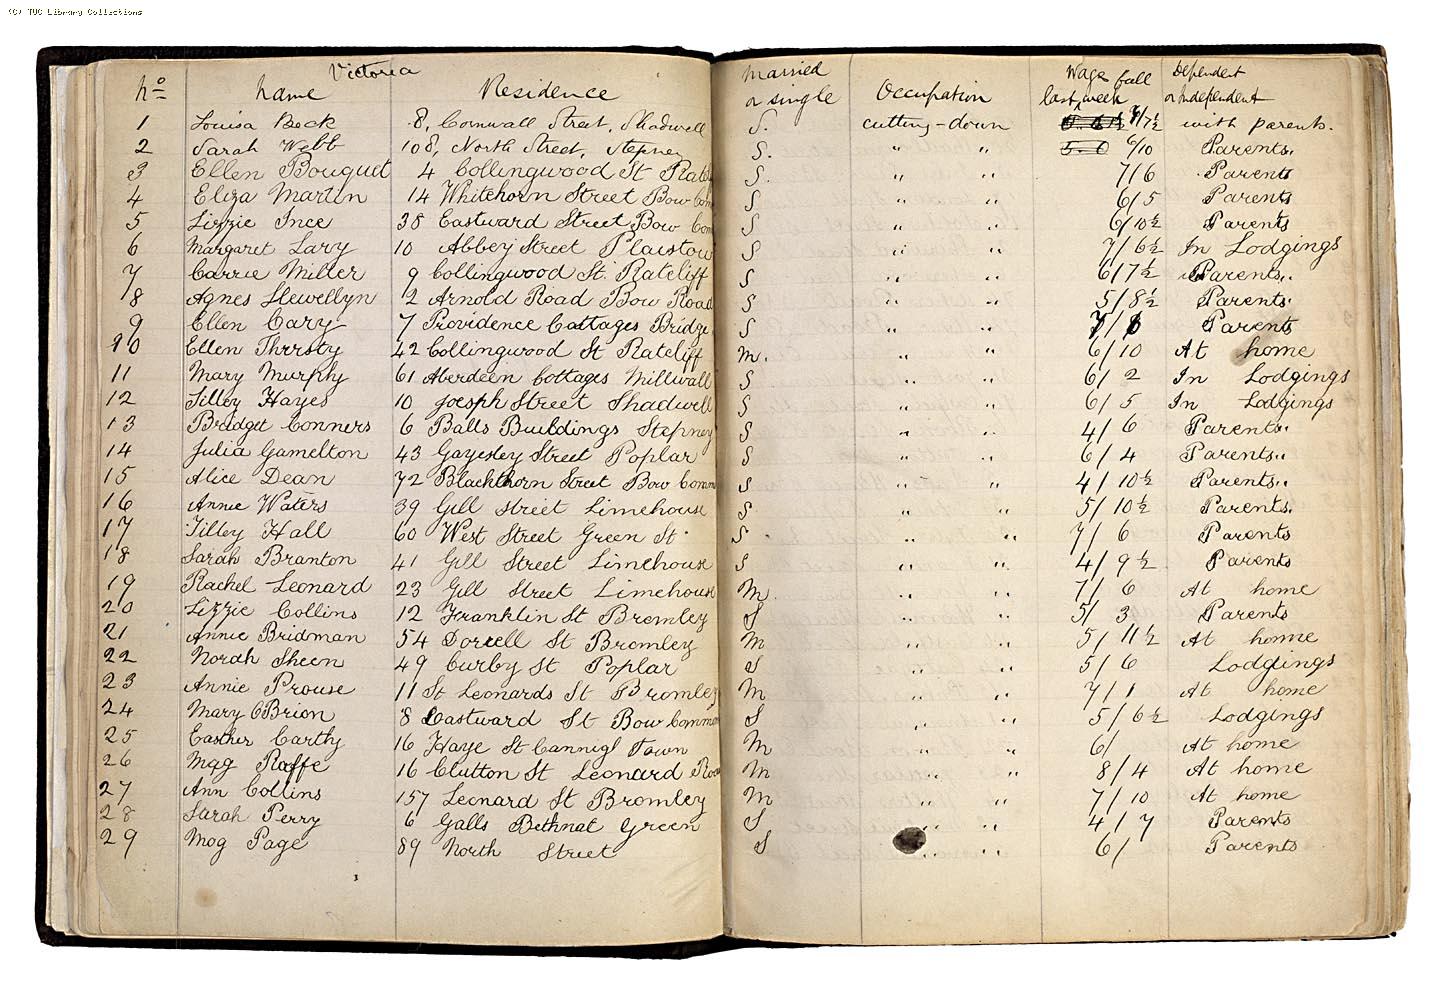 (C) TUC Library Collections
Victoria
No Name Residence Married or single Occupation Wage full last week Dependent or Independent
1 Louisa Beck 8, Cornwall Street, Shadwell S. cutting-down 7½ with parents.
2 Sarah Webb 108, North Street, Stepney S. " " 6/10 Parents.
3 Ellen Bouquet 4 Collingwood St S. " " 7/6 Parents
4 Eliza Martin 14 Whitehorn Street Bow S " " 6/5 Parents
5 Lizzie Ince 38 Eastward Street Bow S " " 6/10½ Parents
6 Margaret Lary 10 Abbey Street Plaistow S " " 7/6½ In Lodgings
7 Carrie Miller 9 Collingwood St. Ratcliff S " " 6/7½ Parents..
8 Agnes Llewellyn 2 Arnold Road Bow Road S " " 5/8½ Parents.
9 Ellen Cary 7 Providence Cottages Bridge S " " Parents
10 Ellen Thrrsty 42 Collingwood St Ratcliff M. " " 6/10 At home
11 Mary Murphy 61 Aberdeen Cottages Millwall S " " 6/2 In Lodgings
12 Tilley Hayes 10 Joesph Street Shadwell S " " 6/5 In Lodgings
13 Bridget Conners 6 Balls Buildings Stepney S " " 4/6 Parents.
14 Julia Gamelton 43 Gayesley Street Poplar S " " 6/4 Parents..
15 Alice Dean 72 Blackthorn Street Bow Common S " " 4/10½ Parents..
16 Annie Waters 39 Gill Street Limehouse S " " 5/10½ Parents.
17 Tilley Hall 60 West Street Green St. S " " 7/6 Parents
18 Sarah Branton 41 Gill Street Limehouse S " " 4/9½ Parents
19 Rachel Leonard 23 Gill Street Limehouse M. " " 7/6 At home
20 Lizzie Collins 12 Franklin St Bromley S " " 5/3 Parents
21 Annie Bridman 54 St Bromley M " " 5/11½ At home
22 Norah Sheen 49 Curby St Poplar S " " 5/6 Lodgings
23 Annie Prouse 11 St Leonards St Bromley M " " 7/1 At home
24 Mary O'Brion 8 Eastward St Bow Common S " " 5/6½ Lodgings
25 Easther Carthy 16 Haye St Town M " " 6/ At home
26 Mag Raffe 16 Clutton St Leonard Road M " " 8/4 At home
27 Ann Collins 157 Leonard St Bromley M " " 7/10 At home
28 Sarah Perry 6 Galls Bethnat Green S " " 4/7 Parents
29 Mog Page 89 North Street S " " 6/ Parents